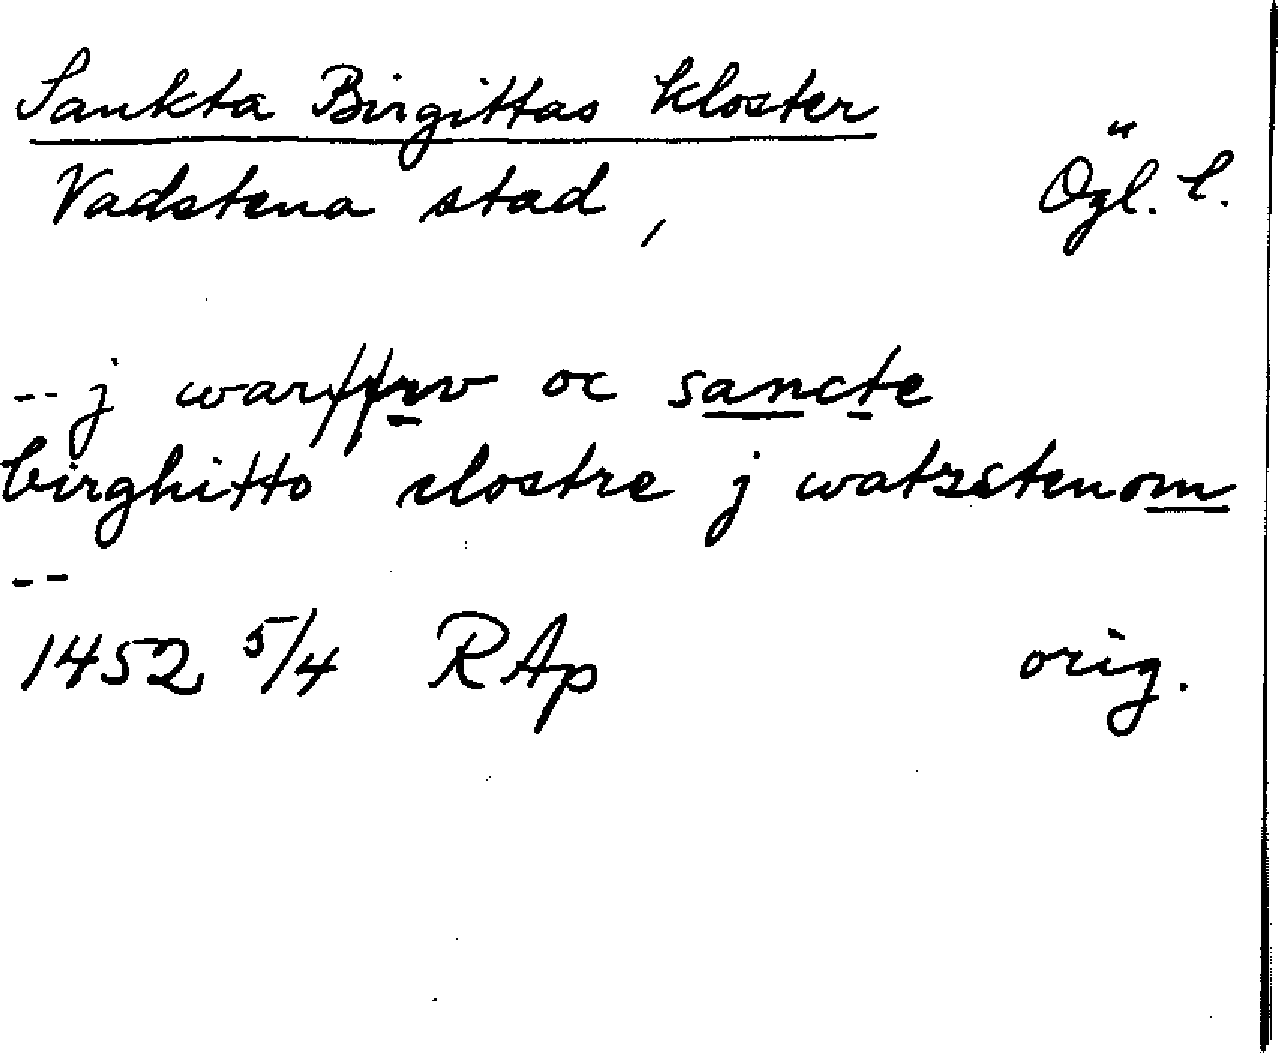 Sankta Birgittas kloster
Vadstena stad, Ögl. l.
-- j warffrv oc sancte
birghitto clostre j watzstenom
--
1452 5/4 RAp orig.